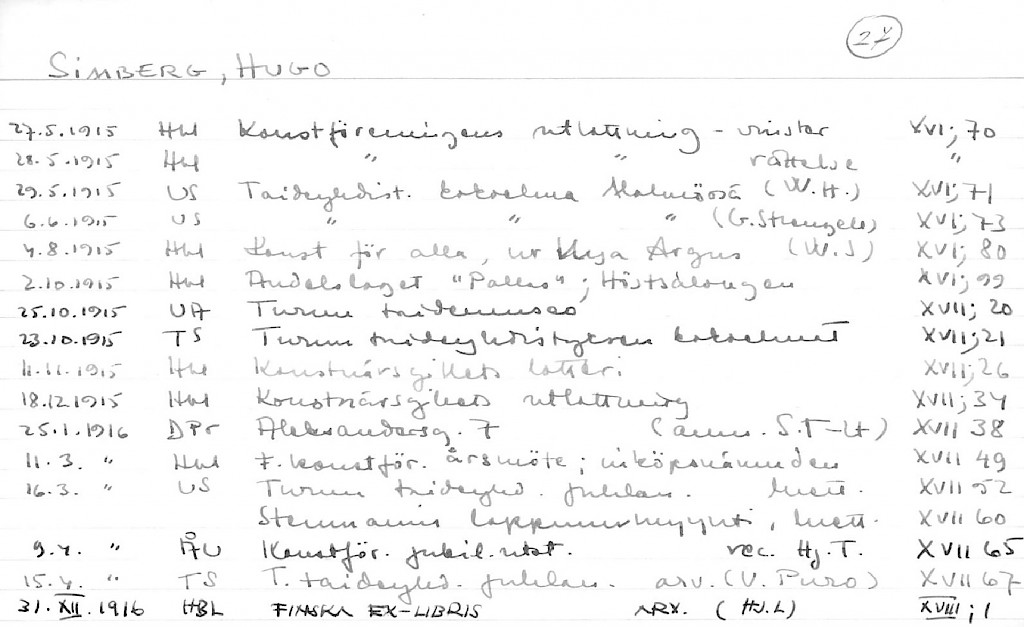 27
SIMBERG, HUGO
27.5.1915 Hbl Konstföreningens utlottning - vinster XVI; 70
28.5.1915 Hbl " " rättelse "
29.5.1915 US Taideyhdist. kokoelma Malmössä (W.H.) XVI; 71
6.6.1915 US " " " (G. Strengell) XVI; 73
4.8.1915 Hbl Konst för alla, ur Nya Argus (W.J) XVI; 80
2.10.1915 Hbl Andelslaget "Pallas"; Höstsalongen XVI; 99
25.10.1915 UA Turun taidemuseo XVII; 20
23.10.1915 TS Turun taideyhdistyksen kokoelmat XVII; 21
11.11.1915 Hbl Konstnärsgillets lotteri XVII; 26
18.12.1915 Hbl Konstnärsgillets utlottning XVII; 34
25.1.1916 DPr Aleksandersg. 7 (S.T-lt) XVII 38
11.3. " Hbl F. konstför. årsmöte; inköpsnämnden XVII 49
16.3. " US Turun taideyhd. juhlan. luett. XVII 52
Stenmanis loppuunmyynti, luett. XVII 60
9.4. " ÅU Konstför. jubil.utst. rec. Hj.T. XVII 65
15.4. " TS T. taideyhd. juhlan. arv. (V. Puro) XVII 67
31.XII.1916 HBL FINSKA EX-LIBRIS ARV. (HJ.L) XVIII; 1